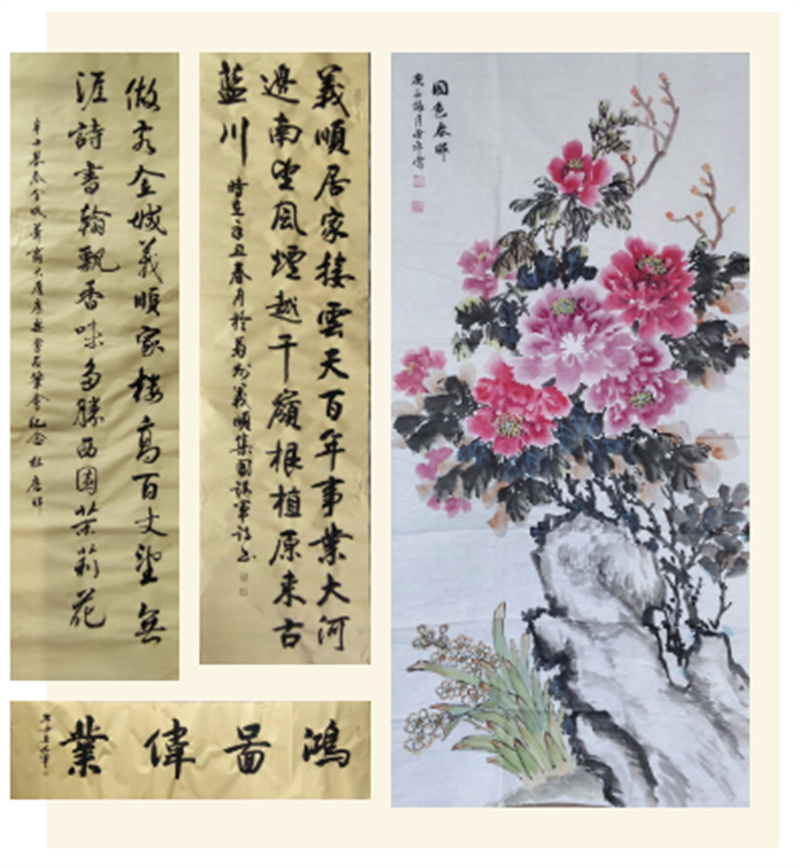 做客金城義順家樓高百丈望無
涯詩書翰飄香味多勝西園茉莉花
義順居家接雲天百年事業大河
邊南望風煙越千嶺根植原來古
藍川
時在辛丑春月於蘭州義順集團
国色春晖
鴻圖偉業